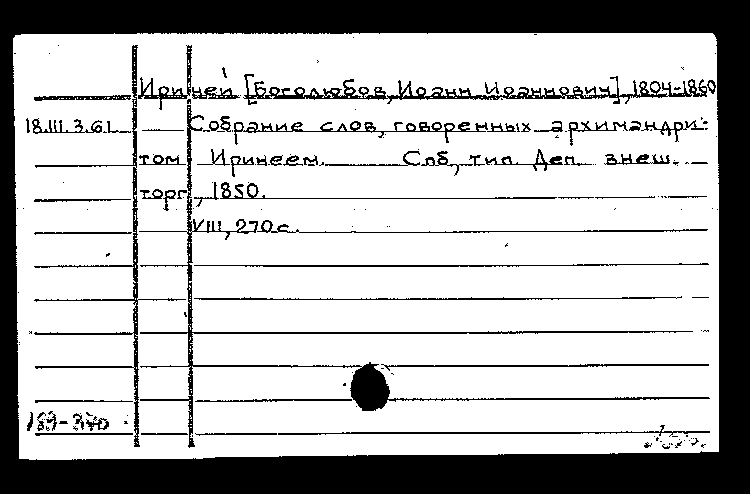 Ириней [Боголюбов, Иоанн Иоаннович], 1804-1860
18.III.3.61 Собрание слов, говоренных архимандри-
том Иринеем. Спб, тип. Деп. внеш.
торг., 1850.
VIII, 270 с.
189-370